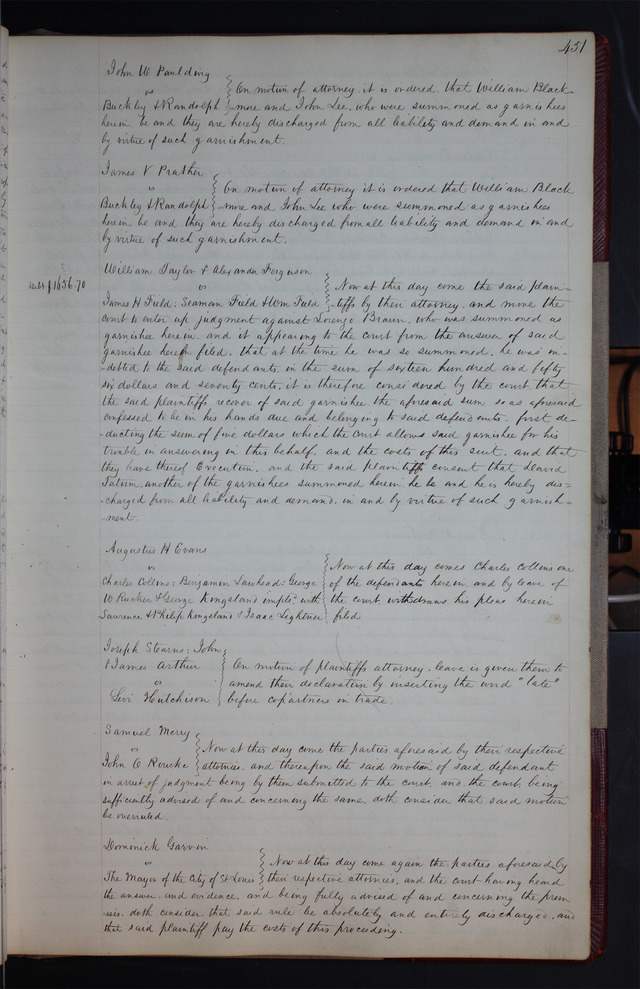 451
John W Paulding
vs
Buckley & Randolph
On motion of attorney it is ordered that William Black-
more and John Lee, who were summoned as garnishees
herein be and they are hereby discharged from all liability and demand in and
by virtue of such garnishment.
James V Prather
vs
Buckley & Randolph
On motion of attorney it is ordered that William Black
more and John Lee who were summoned as garnishees
herein be and they are hereby discharged from all liability and demand in and
by virtue of such garnishment.
William Taylor & Alexander Ferguson
vs
James H Field: Seaman Field & Wm Field
$1656.70
Now at this day come the said plain-
-tiffs by their attorney, and move the
court to enter up judgment against Lorenzo Brawn, who was summoned as
garnishee herein, and it appearing to the court from the answer of said
garnishee herein filed, that at the time he was so summoned, he was in-
-debted to the said defendants in the sum of sixteen hundred and fifty
six dollars and seventy cents, it is therefore considered by the court that
the said plaintiffs recover of said garnishee the aforesaid sum so as aforesaid
confessed to be in his hands due and belonging to said defendants. first de-
-ducting the sum of five dollars which the court allows said garnishee for his
trouble in answering in this behalf, and the costs of this suit, and that
they have thereof Execution, and the said plaintiffs consent that David
Tatum, another of the garnishees summoned herein he be and he is hereby dis=
-charged from all liability and demand, in and by virtue of such garnish-
-ment.
Augustus H Evans
vs
Charles Collins: Benjamin Lawhead: George
W Rucker & George Kingsland impld with
Lawrence & Philip Kingsland & Isaac Lightner
Now at this day comes Charles Collins one
of the defendants herein and by leave of
the court withdraws his pleas herein
filed
Joseph Stearns: John
& James Arthur
vs
Levi Hutchison
On motion of plaintiffs attorney, leave is given them to
amend their declaration by inserting the word "late"
before copartners in trade
Samuel Merry
vs
John O Rourke
Now at this day come the parties aforesaid by their respective
attornies, and thereupon the said motion of said defendant
in arrest of judgment being by them submitted to the court, and the court being
sufficiently advised of and concerning the same, doth consider that said motion
be overruled.
Dominick Garvin
vs
The Mayor of the City of St Louis
Now at this day come again the parties aforesaid by
their respective attornies, and the court having heard
the answer, and evidence, and being fully advised of and concerning the prem
-ises, doth consider, that said rule be absolutely and entirely discharged, and
that said plaintiff pay the costs of this proceeding.